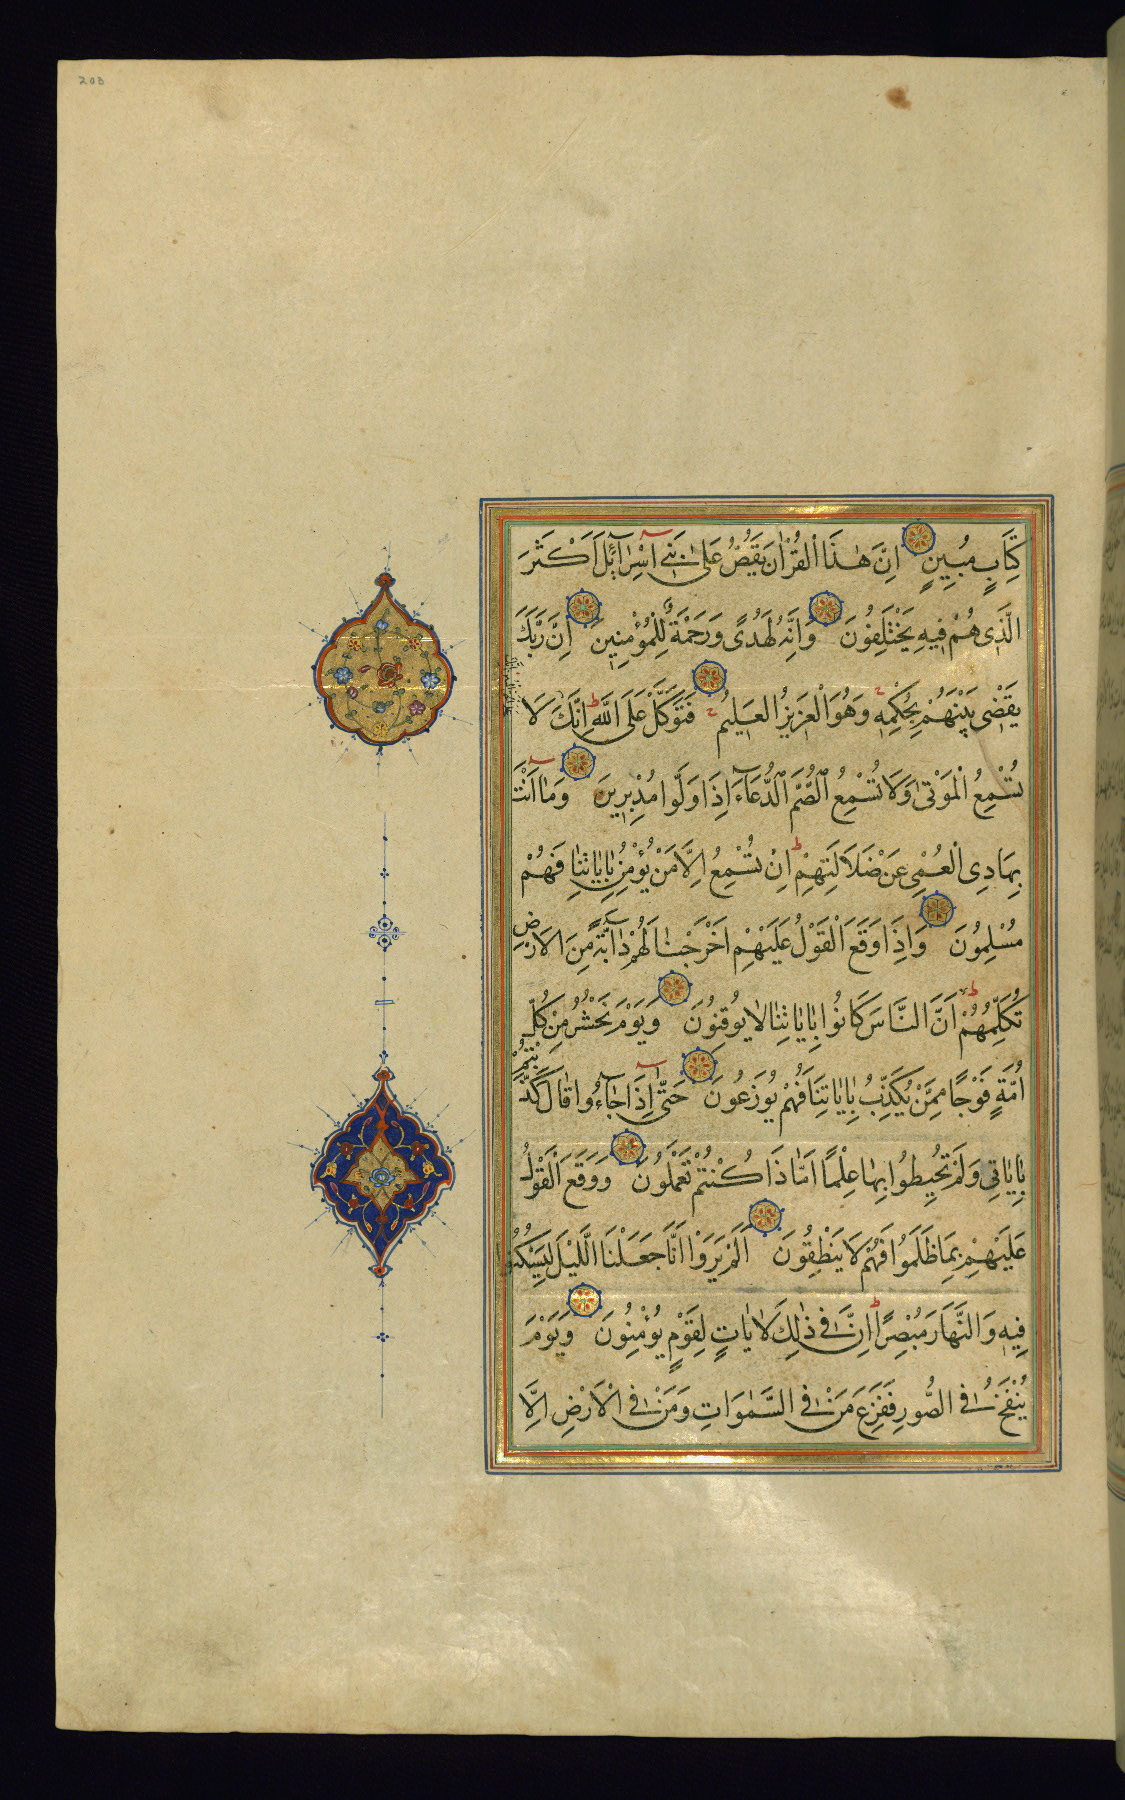 203
كِتَابٍ مُبِينٍ اِنَّ هٰذَا الْقُرْاٰنَ يَقُصُّ عَلٰى بَنِٓى اِسْرَآئِلَ اَكْثَرَ
الَّذِى هُمْ فِيهِ يَخْتَلِفُونَ وَاِنَّهُ لَهُدًى وَرَحْمَةٌ لِلْمُؤْمِنِينَ اِنَّ رَبَّكَ
يَقْضِى بَيْنَهُمْ بِحُكْمِهِ وَهُوَ الْعَزِيزُ الْعَلِيمُ فَتَوَكَّلْ عَلَى اللّٰهِ اِنَّكَ لَا
تُسْمِعُ الْمَوْتٰى وَلَا تُسْمِعُ الصُّمَّ الدُّعَآءَ اِذَا وَلَّوْا مُدْبِرِينَ وَمَٓا اَنْتَ
بِهَادِى الْعُمْىِ عَنْ ضَلَالَتِهِمْ اِنْ تُسْمِعُ اِلَّا مَنْ يُؤْمِنُ بِاٰيَاتِنَا فَهُمْ
مُسْلِمُونَ وَاِذَا وَقَعَ الْقَوْلُ عَلَيْهِمْ اَخْرَجْنَا لَهُمْ دَآبَّةً مِنَ الْاَرْضِ
تُكَلِّمُهُمْ اَنَّ النَّاسَ كَانُوا بِاٰيَاتِنَا لَا يُوقِنُونَ وَيَوْمَ نَحْشُرُ مِنْ كُلِّ
اُمَّةٍ فَوْجًا مِمَّنْ يُكَذِّبُ بِاٰيَاتِنَا فَهُمْ يُوزَعُونَ حَتّٰٓى اِذَا جَآءُوا قَالَ اَكَذَّبْتُمْ
بِاٰيَاتِى وَلَمْ تُحِيطُوا بِهَا عِلْمًا اَمَّا ذَا كُنْتُمْ تَعْمَلُونَ وَوَقَعَ الْقَوْلُ
عَلَيْهِمْ بِمَا ظَلَمُوا فَهُمْ لَا يَنْطِقُونَ اَلَمْ يَرَوْا اَنَّا جَعَلْنَا الَّليْلَ لِيَسْكُنُوا
فِيهِ وَالنَّهَارَ مُبْصِرًا اِنَّ فِى ذٰلِكَ لَاٰيَاتٍ لِقَوْمٍ يُؤْمِنُونَ وَيَوْمَ
يُنْفَخُ فِى الصُّورِ فَفَزِعَ مَنْ فِى السَّمٰوَاتِ وَمَنْ فِى الْاَرْضِ اِلَّا